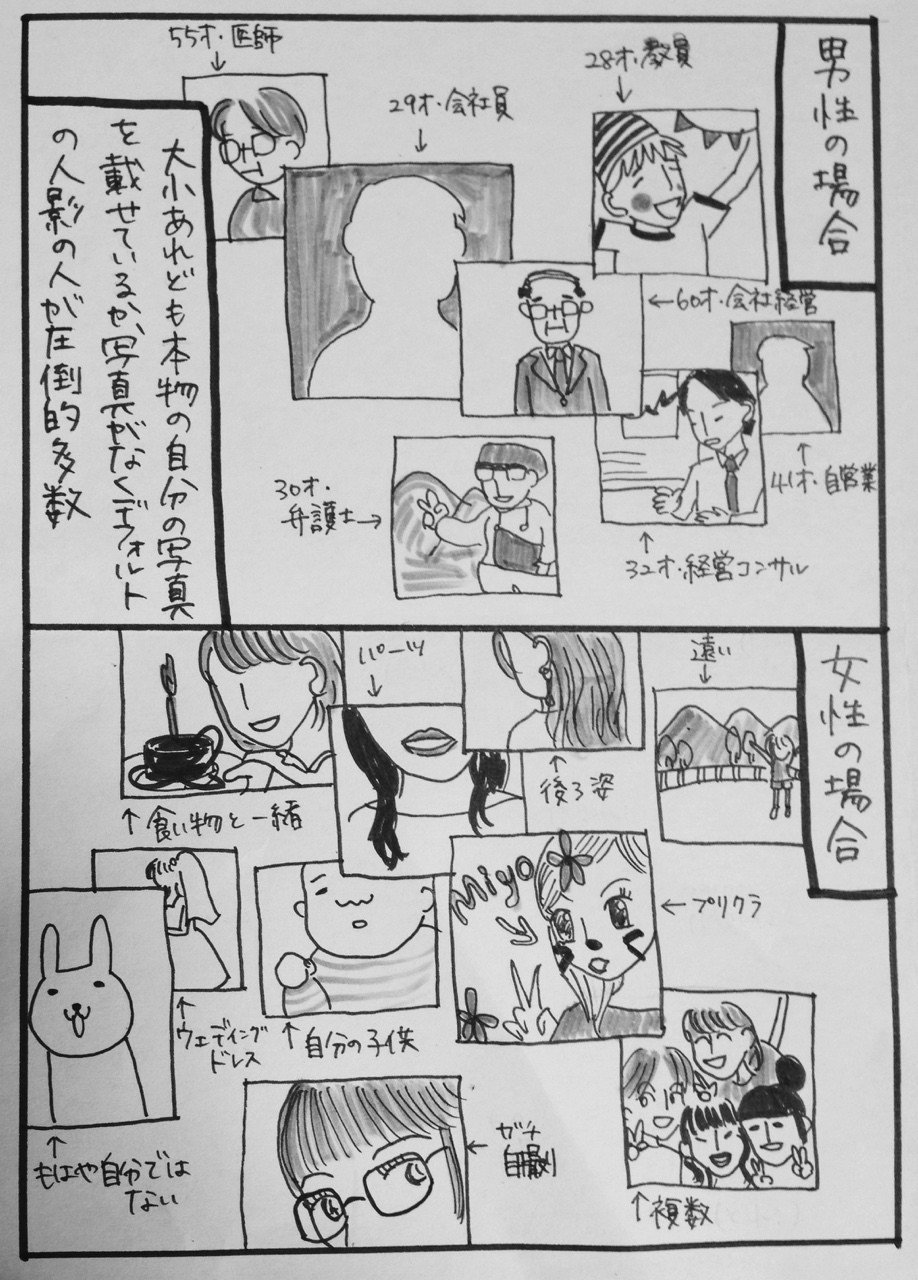 男性の場合
55才・医師
29才・会社員
28才・教員
60才・会社経営
41才・自営業
32才・経営コンサル
30才・
弁護士
大小あれども本物の自分の写真
を載せているか、写真がなくデフォルト
の人影の人が圧倒的多数
女性の場合
遠い
後ろ姿
パーツ
食い物と一緒
プリクラ
Miyo
自分の子供
ウェディング
ドレス
もはや自分では
ない
ガチ
自撮り
複数